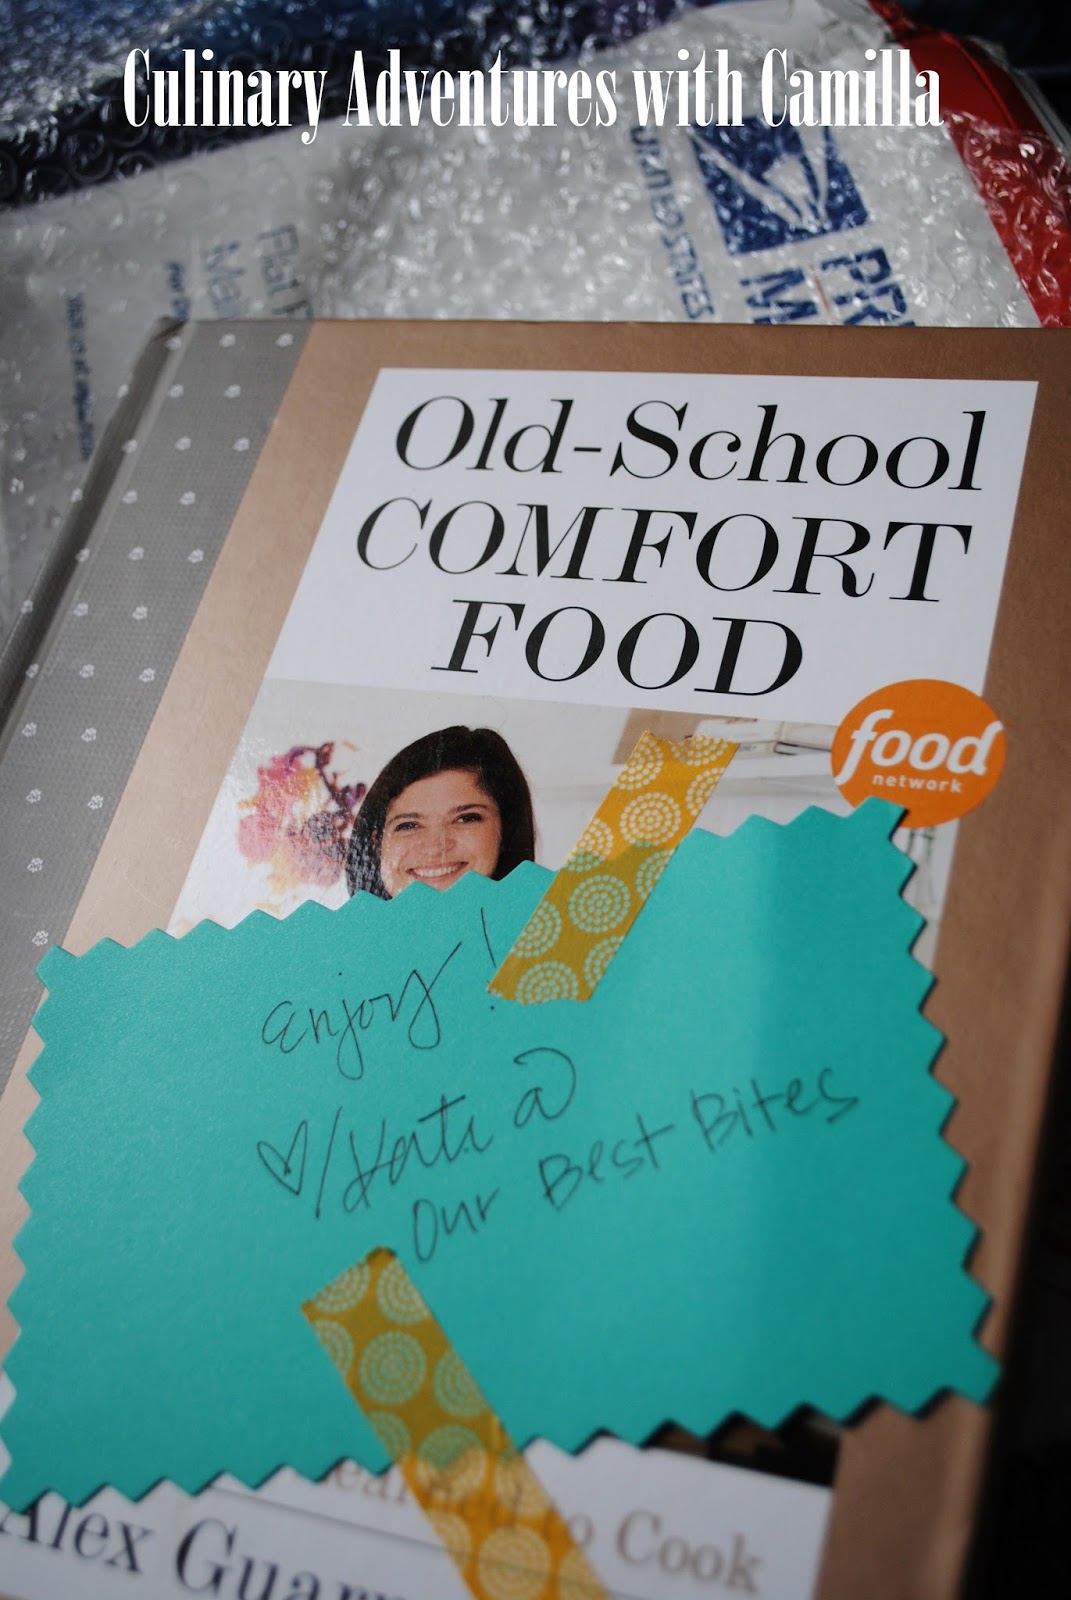 Culinary Adventures with Camilla
UNITED STATES
Flat
Mai
PR
M
Old-School
COMFORT
FOOD
food
network
Enjoy!
♡/Kate @
Our Best Bites
to Cook
Alex Guar